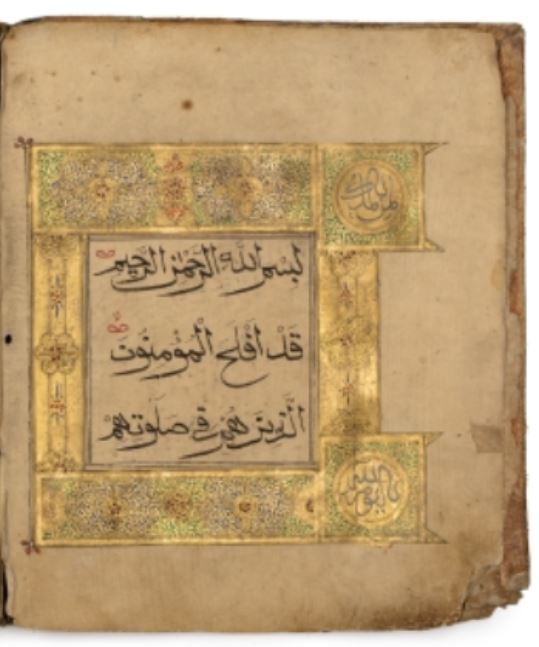 بِسْمِ اللَّهِ الرَّحْمٰنِ الرَّحِيمِ
قَدْ أَفْلَحَ الْمُؤْمِنُونَ
الَّذِينَ هُمْ فِي صَلَوٰتِهِمْ